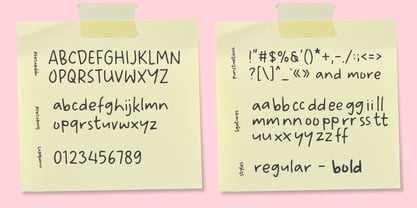 uppercase
ABCDEFGHIJKLMN
OPQRSTUVWXYZ
lowercase
abcdefghijklmn
opqrstuvwxyz
numbers
0123456789
punctuations
!"#$%&'()*+,-./:;<=>
?[\]^_`«» and more
ligatures
aabbccddeegg iill
mmnnoopprrsstt
uuxxyyzzff
styles
regular - bold